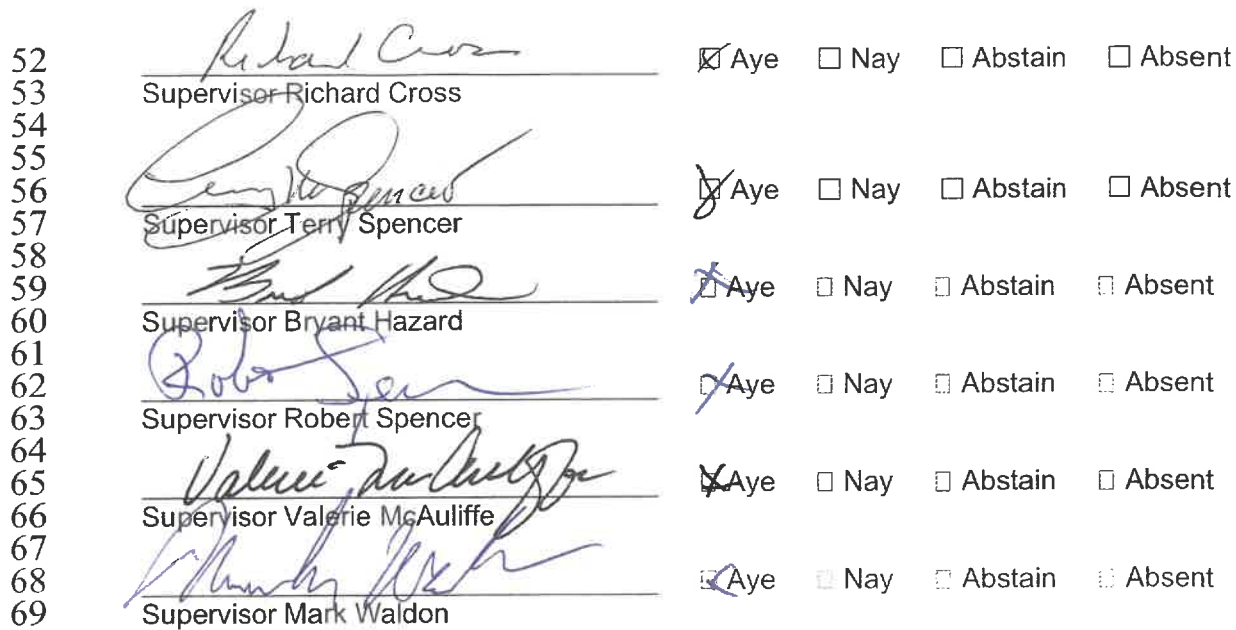 52 Richard Cross ☒ Aye ☐ Nay ☐ Abstain ☐ Absent
53 Supervisor Richard Cross
54
55
56 Terry Spencer ☒ Aye ☐ Nay ☐ Abstain ☐ Absent
57 Supervisor Terry Spencer
58
59 ☒ Aye ☐ Nay ☐ Abstain ☐ Absent
60 Supervisor Bryant Hazard
61
62 ☒ Aye ☐ Nay ☐ Abstain ☐ Absent
63 Supervisor Robert Spencer
64
65 Valerie ☒ Aye ☐ Nay ☐ Abstain ☐ Absent
66 Supervisor Valerie McAuliffe
67
68 ☑ Aye ☐ Nay ☐ Abstain ☐ Absent
69 Supervisor Mark Waldon